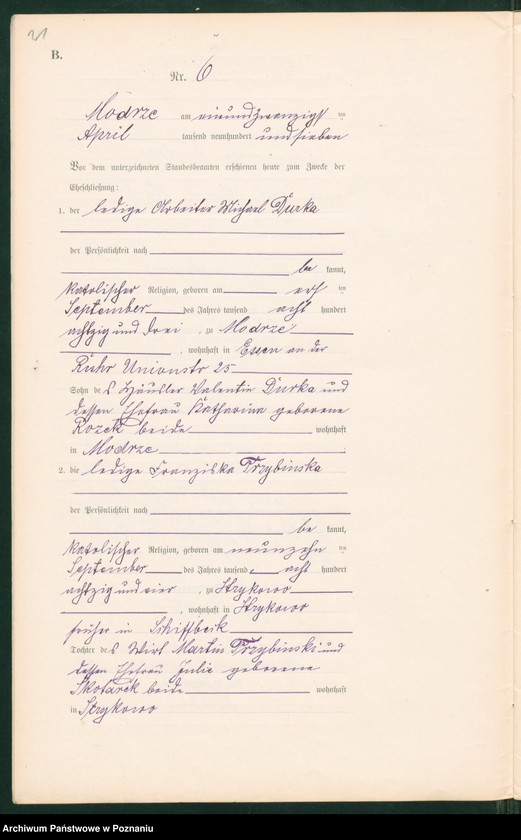 21
B.
Nr. 6
Modrze am einundzwanzigsten
April tausend neunhundert und sieben
Vor dem unterzeichneten Standesbeamten erschienen heute zum Zwecke der
Eheschließung:
1. der ledige Arbeiter Michael Durka
der Persönlichkeit nach
be kannt,
katolischer Religion, geboren am ersten
September des Jahres tausend acht hundert
achtzig und drei, zu Modrze
, wohnhaft in Essen an der
Ruhr Unionstr 25
Sohn des Häusler Valentin Durka und
dessen Ehefrau Katharina geborene
Rozek beide wohnhaft
in Modrze
2. die ledige Franziska Przybinska
der Persönlichkeit nach
be kannt,
katolischer Religion, geboren am neunzehnten
September des Jahres tausend acht hundert
achtzig und vier, zu Strykowo
, wohnhaft in Strykowo
früher in Schiffbeik
Tochter des Wirt Martin Przybinski und
dessen Ehefrau Julie geborene
Skotarek beide wohnhaft
in Strykowo
Archiwum Państwowe w Poznaniu